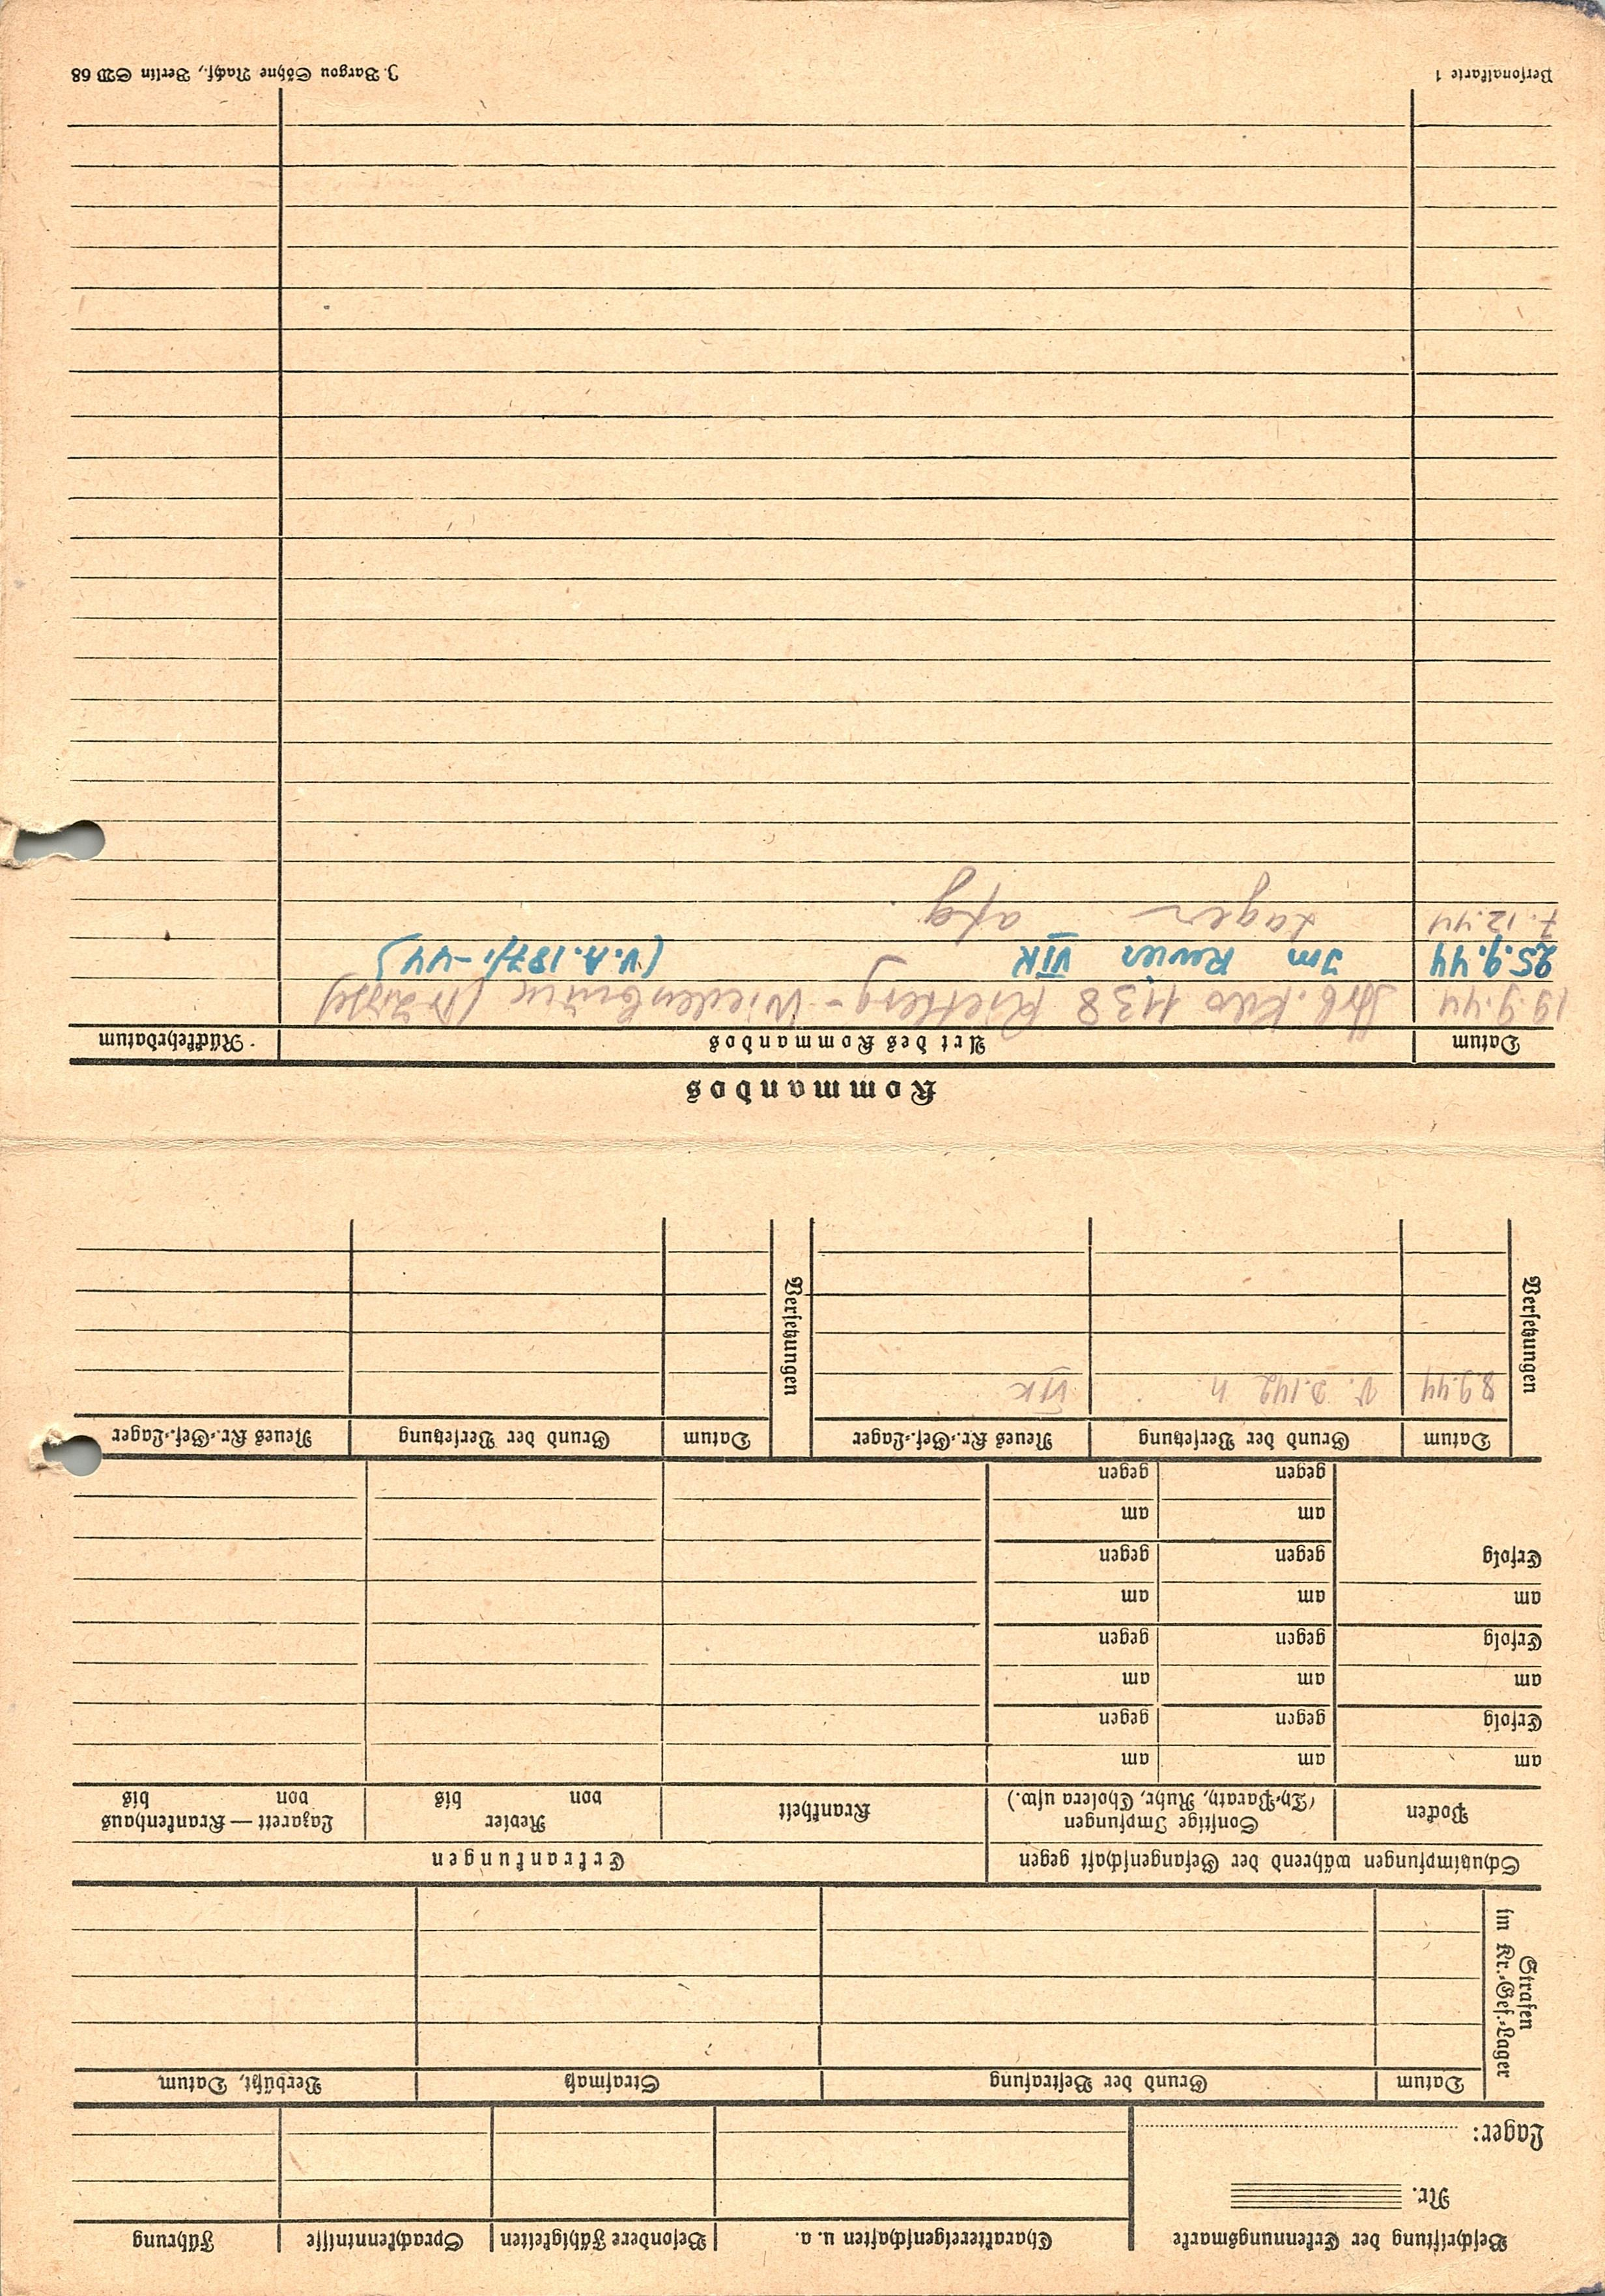 Beschriftung der Erkennungsmarke | Charaktereigenschaften u. a. | Besondere Fähigkeiten | Sprachkenntnisse | Führung
Nr.
Lager:
Strafen im Kr.-Gef.-Lager
Datum | Grund der Bestrafung | Strafmaß | Verbüßt, Datum
Schutzimpfungen während der Gefangenschaft gegen | Erkrankungen
Pocken | Sonstige Impfungen (Ty.-Paraty, Ruhr, Cholera usw.) | Krankheit | Revier von bis | Lazarett — Krankenhaus von bis
am | am | am
Erfolg | gegen | gegen
am | am | am
Erfolg | gegen | gegen
am | am | am
Erfolg | gegen | gegen
am | am
gegen | gegen
Versetzungen | Datum | Grund der Versetzung | Neues Kr.-Gef.-Lager | Versetzungen | Datum | Grund der Versetzung | Neues Kr.-Gef.-Lager
8.9.44 | VIK
Kommandos
Datum | Art des Kommandos | Rückkehrdatum
19.9.44 | Arb. Kdo 1138 Rietberg-Wiedenbrück
25.9.44 | Im Revier VIK (V.A. 187/1.-44)
7.12.44 | Lager
Personalkarte 1 | J. Bargou Söhne Nachf., Berlin SW 68